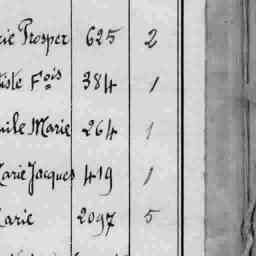 rie Prosper 625 2
tiste Fois 384 1
mile Marie 264 1
Marie Jacques 419 1
Marie 2097 5